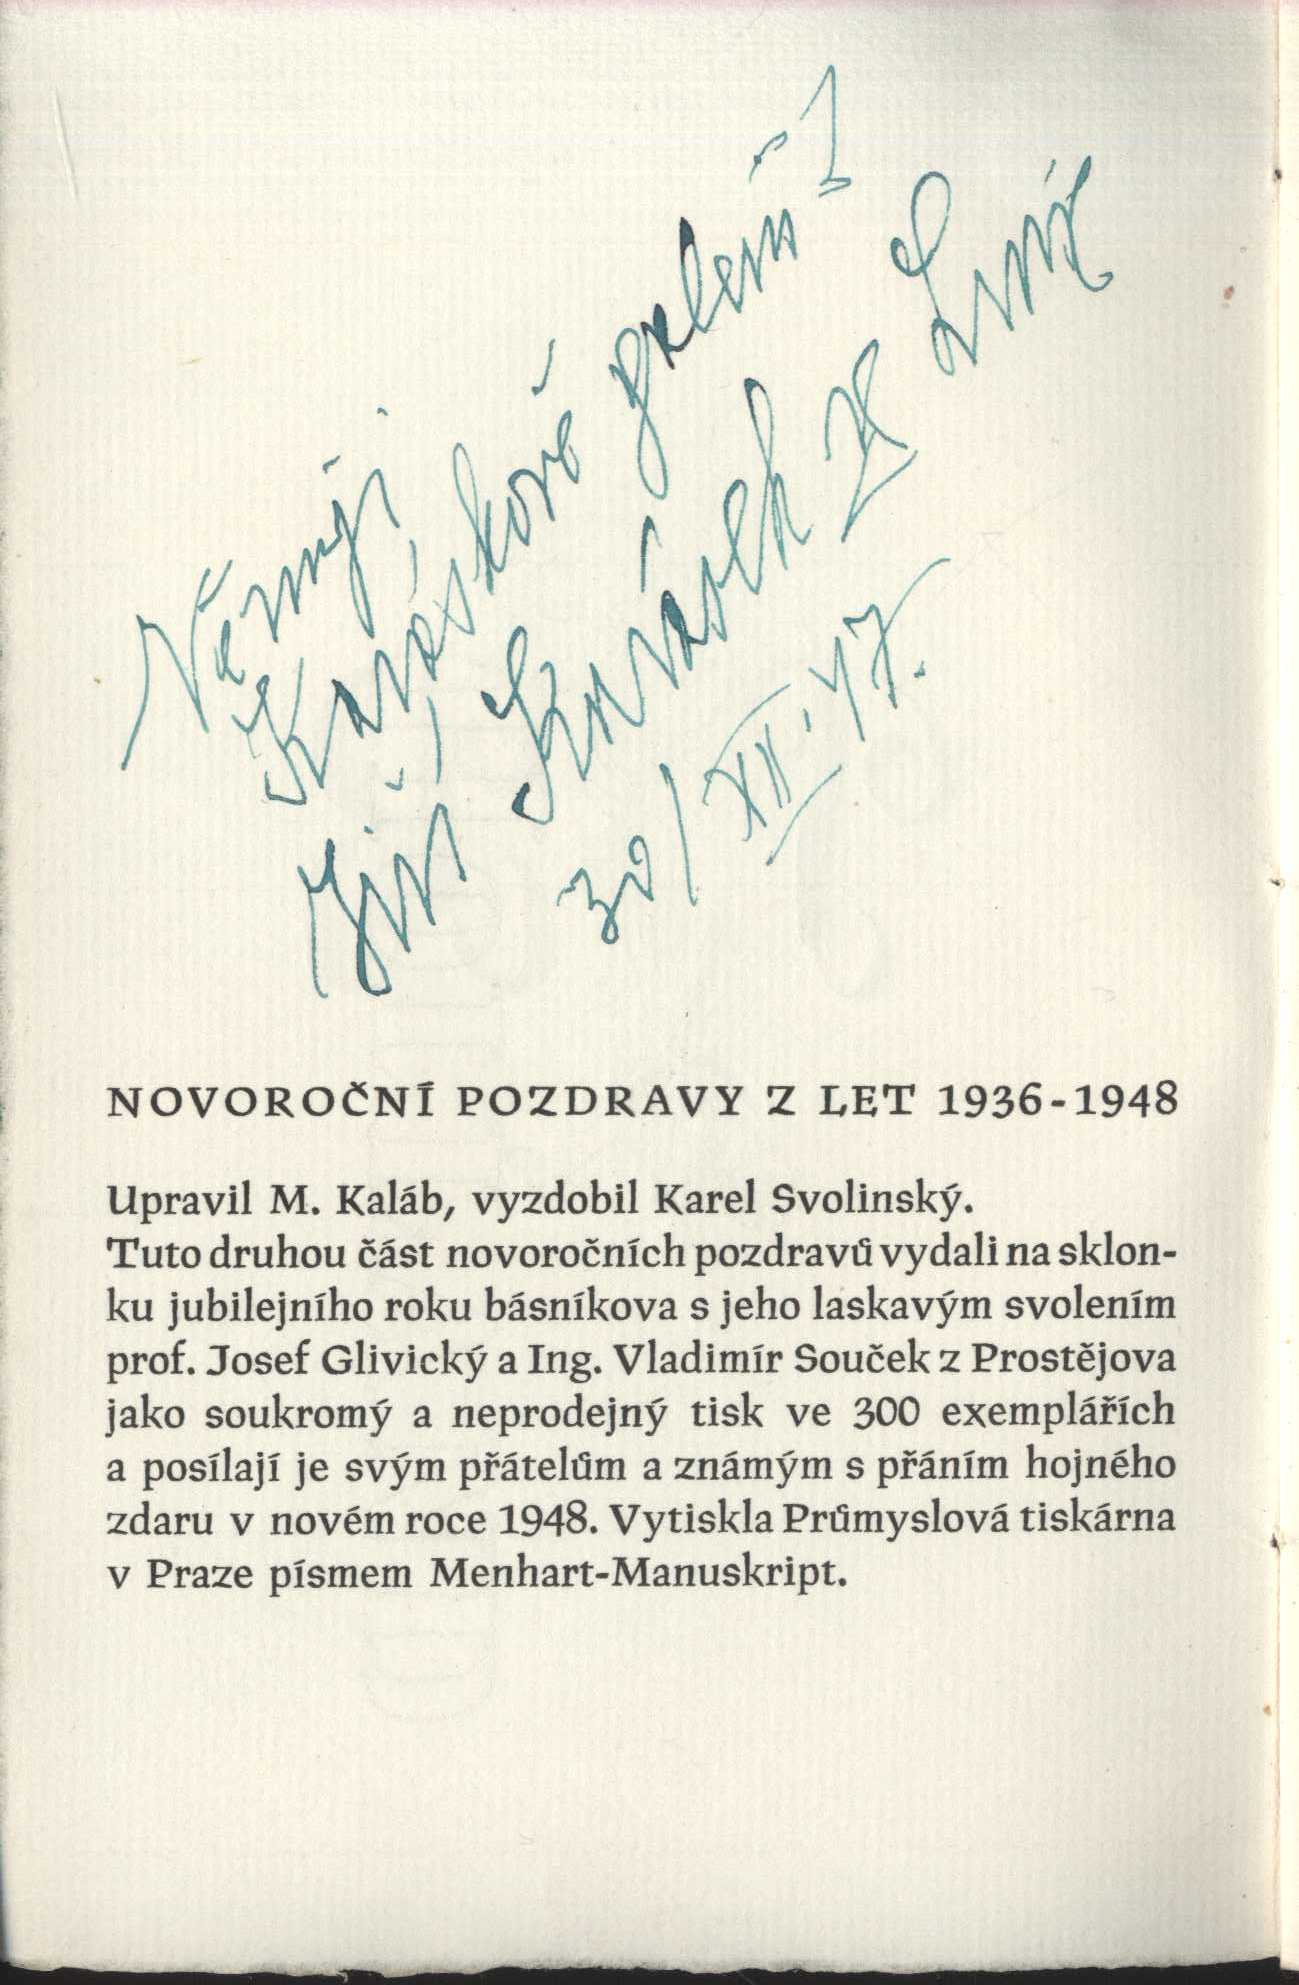 Věnuji
Karáskově galerii!
Jiří Karásek ze Lvovic
30/XII. 47.
NOVOROČNÍ POZDRAVY Z LET 1936-1948
Upravil M. Kaláb, vyzdobil Karel Svolinský.
Tuto druhou část novoročních pozdravů vydali na sklon-
ku jubilejního roku básníkova s jeho laskavým svolením
prof. Josef Glivický a Ing. Vladimír Souček z Prostějova
jako soukromý a neprodejný tisk ve 300 exemplářích
a posílají je svým přátelům a známým s přáním hojného
zdaru v novém roce 1948. Vytiskla Průmyslová tiskárna
v Praze písmem Menhart-Manuskript.